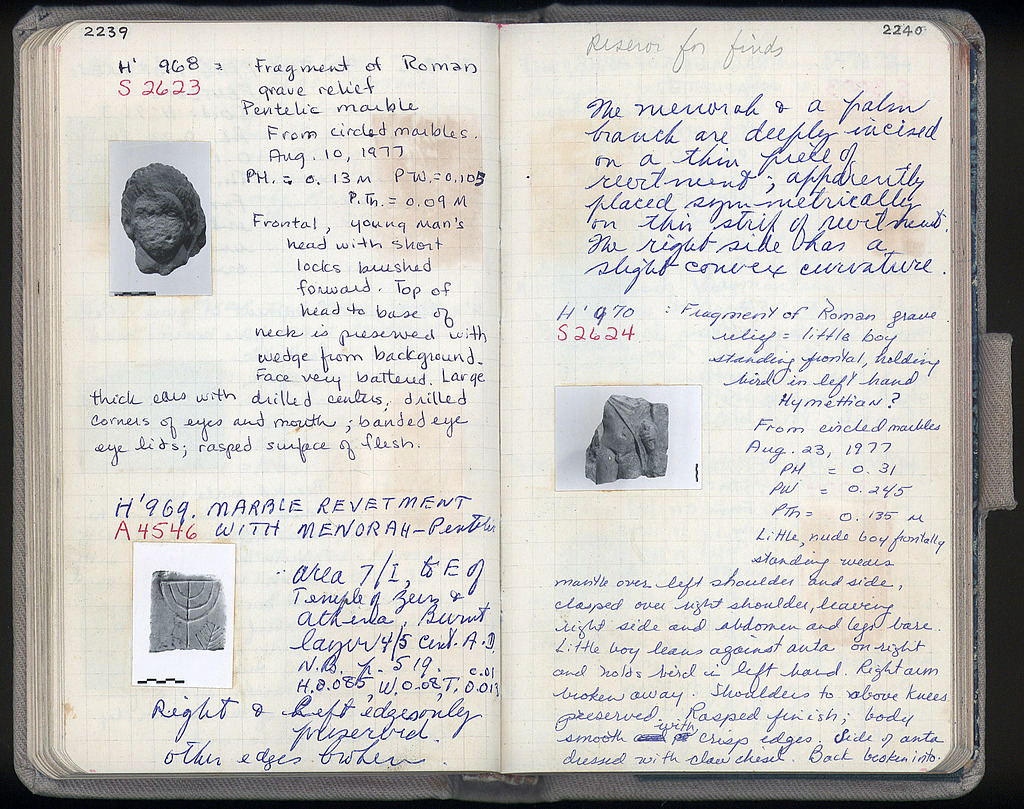 2239
H' 968 : Fragment of Roman
S 2623 grave relief
Pentelic marble
From circled marbles.
Aug. 10, 1977
PH. = 0.13 M P.W. = 0.105
P.Th. = 0.09 M
Frontal, young man's
head with short
locks brushed
forward. Top of
head to base of
neck is preserved with
wedge from background.
Face very battered. Large
thick ears with drilled centers; drilled
corners of eyes and mouth; banded eye
eye lids; rasped surface of flesh.
H' 969. MARBLE REVETMENT
A 4546 WITH MENORAH - Pentelic
area 7/I, to E of
Temple of Zeus &
Athena, Burnt
layer 4/5 cent. A.D.
N.B. p. 519. c.01
H.0.085, W.0.08, T. 0.013
Right & Left edges only
preserved.
other edges broken.
2240
for finds
The menorah & a palm
branch are deeply incised
on a thin piece of
revetment; apparently
placed symmetrically
on this strip of revetment.
The right side has a
slight convex curvature.
H' 970 : Fragment of Roman grave
S 2624 relief = little boy
standing frontal, holding
bird in left hand
Hymettian?
From circled marbles
Aug. 23, 1977
PH = 0.31
PW = 0.245
PTh = 0.135 M
Little, nude boy frontally
standing wears
mantle over left shoulder and side,
clasped over right shoulder, leaving
right side and abdomen and legs bare.
Little boy leans against anta on right
and holds bird in left hand. Right arm
broken away. Shoulders to above knees
preserved. Rasped finish; body
smooth with crisp edges. Side of anta
dressed with claw chisel. Back broken into.